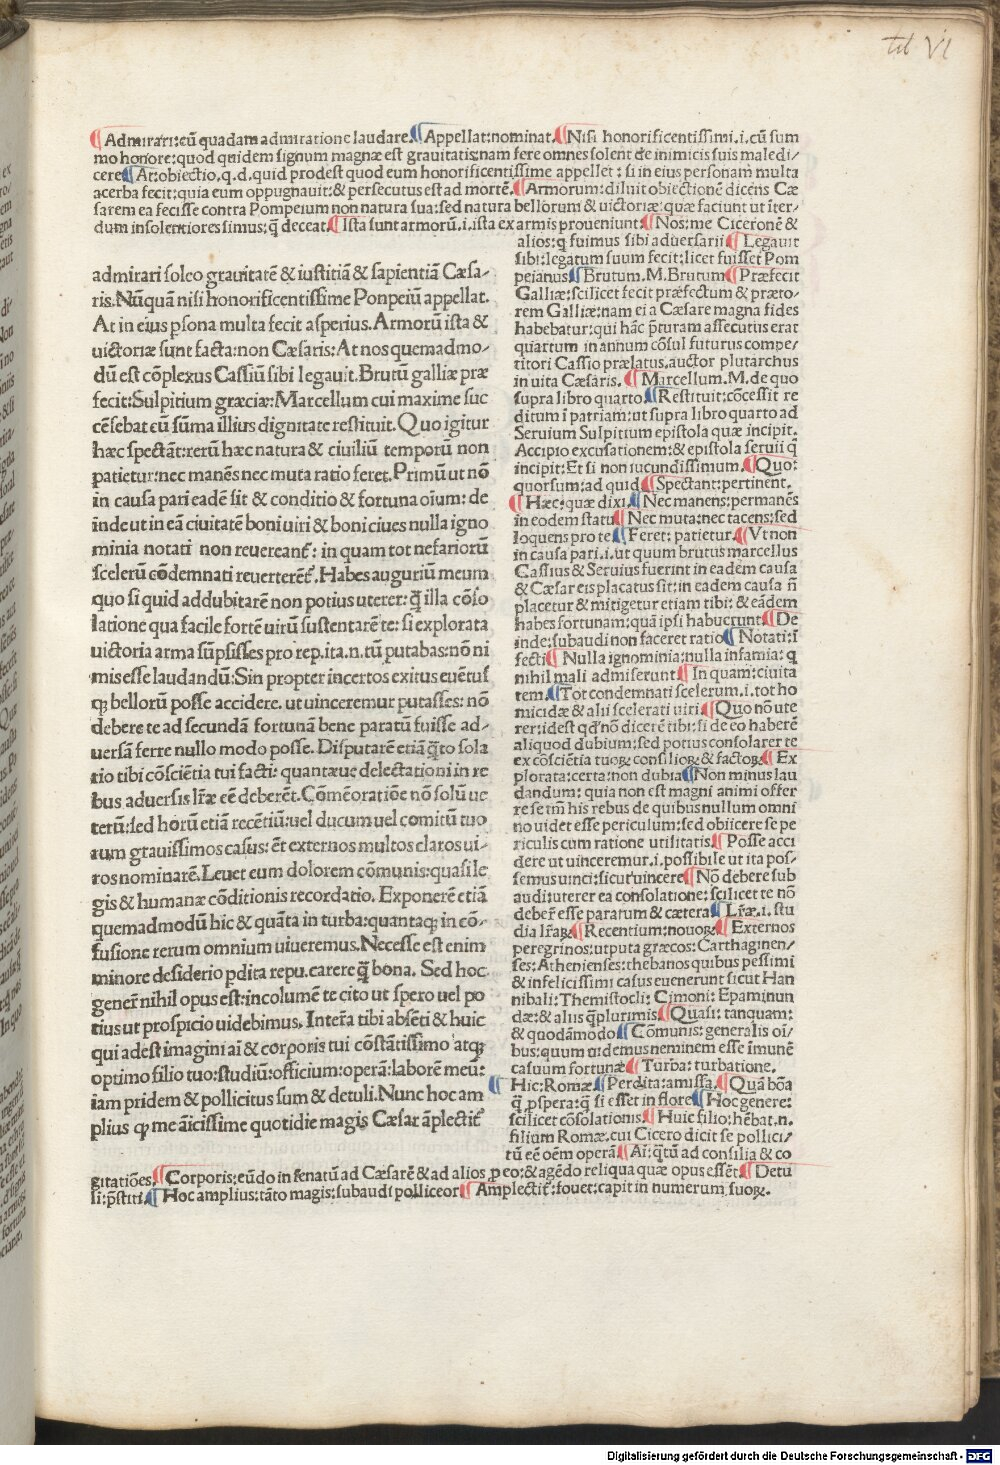 lib VI
¶ Admirari:cū quadam admiratione laudare.¶ Appellat:nominat.¶ Nisi honorificentissimi.i.cū sum
mo honore:quod quidem signum magnæ est grauitatis:nam fere omnes solent de inimicis suis maledi/
cere¶ At:obiectio.q.d.quid prodest quod eum honorificentissime appellet : si in eius personam multa
acerba fecit:quia eum oppugnauit:& persecutus est ad mortē.¶ Armorum:diluit obiectionē dicens Cæ
sarem ea fecisse contra Pompeium non natura sua:sed natura bellorum & uictoriæ:quæ faciunt ut īter/
dum insolentiores simus:q̄ deceat.¶ Ista sunt armorū.i.ista ex armis proueniunt¶ Nos:me Ciceronē &
admirari soleo grauitatē & iustitiā & sapientiā Cæsa/
ris.Nūquā nisi honorificentissime Ponpeiū appellat.
At in eius ꝑsona multa fecit asperius.Armorū ista &
uictoriæ sunt facta:non Cæsaris:At nos quemadmo/
dū est cōplexus Cassiū sibi legauit.Brutū galliæ præ
fecit:Sulpitium græciæ:Marcellum cui maxime suc
cēsebat cū sūma illius dignitate restituit.Quo igitur
hæc spectāt:rerū hæc natura & ciuiliū temporū non
patietur:nec manēs nec muta ratio feret.Primū ut nō
in causa pari eadē sit & conditio & fortuna oīum: de
inde ut in eā ciuitatē boni uiri & boni ciues nulla igno
minia notati non reuereant̄: in quam tot nefariorū
scelerū condemnati reuerterēt̄.Habes auguriū meum
quo si quid addubitarē non potius uterer:q̄ illa cōso
latione qua facile fortē uirū sustentarē te: si explorata
uictoria arma sūpsisses pro rep.ita.n.tū putabas:nō ni
mis esse laudandū:Sin propter incertos exitus euētusq̄
qꝫ bellorū posse accidere. ut uinceremur putasses: nō
debere te ad secundā fortunā bene paratū fuisse ad/
uersā ferre nullo modo posse. Disputarē etiā q̄to sola
tio tibi cōsciētia tui facti: quantæue delectationi in re
bus aduersis lr̄æ eē deberēt.Cōmēoratiōe nō solū ue
terū:sed horū etiā recētiū:uel ducum uel comitū tuo
rum grauissimos casus: ēt externos multos claros ui/
ros nominarē.Leuet eum dolorem cōmunis:quasi le
gis & humanæ cōditionis recordatio. Exponerē etiā
quemadmodū hic & quāta in turba:quantaqꝫ in cō/
fusione rerum omnium uiueremus.Necesse est enim
minore desiderio ꝑdita repu.carere q̄ bona. Sed hoc
generē nihil opus est:incolumē te cito ut spero uel po
tius ut prospicio uidebimus. Interīa tibi absēti & huic
qui adest imagini aī & corporis tui cōstātissimo atqꝫ
optimo filio tuo:studiū:officium:operā:laborē meū:
iam pridem & pollicitus sum & detuli.Nunc hoc am
plius qꝫ me āicissime quotidie magis Cæsar āplectit̄
alios:q fuimus sibi aduersarii ¶ Legauit
sibi:legatum suum fecit:licet fuisset Pom
peianus¶ Brutum.M.Brutum¶ Præfecit
Galliæ:scilicet fecit præfectum & præto-
rem Galliæ:nam ei a Cæsare magna fides
habebatur:qui hāc p̄turam assecutus erat
quartum in annum cōsul futurus compe/
titori Cassio prælatus.auctor plutarchus
in uita Cæsaris. ¶ Marcellum.M.de quo
supra libro quarto¶ Restituit:cōcessit re
ditum ī patriam:ut supra libro quarto ad
Seruium Sulpitium epistola quæ incipit.
Accipio excusationem:& epistola seruii q̄
incipit:Et si non iucundissimum.¶ Quo:
quorsum:ad quid¶ Spectant:pertinent.
¶ Hæc:quæ dixi.¶ Nec manens:permanēs
in eodem statu¶ Nec muta:nec tacens:sed
loquens pro te¶ Feret: patietur.¶ Vt non
in causa pari.i.ut quum brutus marcellus
Cassius & Seruius fuerint in eadem causa
& Cæsar eis placatus sit:in eadem causa n̄
placetur & mitigetur etiam tibi: & eādem
habes fortunam:quā ipsi habuerunt¶ De
inde:subaudi non faceret ratio¶ Notati:ī
fecti¶ Nulla ignominia:nulla infamia: q
nihil mali admiserunt¶ In quam:ciuita
tem.¶ Tot condemnati scelerum.i.tot ho
micidæ & alii scelerati uiri¶ Quo nō ute
rer:idest qd' nō dicerē tibi: si de eo haberē
aliquod dubium:sed potius consolarer te
ex cōsciētia tuoꝝ consilioꝝ & factoꝝ¶ Ex
plorata:certa:non dubia¶ Non minus lau
dandum: quia non est magni animi offer
re se tm̄ his rebus de quibus nullum omni
no uidet esse periculum:sed obiicere se pe
riculis cum ratione utilitatis.¶ Posse acci
dere ut uinceremur.i.possibile ut ita pos/
semus uinci:sicut uincere¶ Nō debere sub
audi:uterer ea consolatione:scilicet te nō
deberē esse paratum & cætera¶ Lr̄æ.i.stu
dia lr̄aꝝ.¶ Recentium:nouoꝝ.¶ Externos
peregrinos:utputa græcos:Carthaginen/
ses:Athenienses:thebanos quibus pessimi
& infelicissimi casus euenerunt sicut Han
nibali:Themistocli: Cimoni: Epaminun
dæ:& aliis q̄plurimis.¶ Quasi: tanquam:
& quodāmodo¶ Cōmunis:generalis oī/
bus:quum uidemus neminem esse īmunē
casuum fortunæ¶ Turba: turbatione.
¶ Hic:Romæ.¶ Perdita:amissa.¶ Quā bōa
q̄ ꝓspera:q̄ si esset in flore¶ Hoc genere:
scilicet cōsolationis.¶ Huic filio:hēbat.n.
filium Romæ.cui Cicero dicit se pollici/
tū eē oēm operā¶ Aī:q̄tū ad consilia & co
gitatiōes.¶ Corporis:eūdo in senatū ad Cæsarē & ad alios ꝑ eo:& agēdo reliqua quæ opus essēt¶ Detu
li:p̄stiti.¶ Hoc amplius:tāto magis:subaudi polliceor¶ Amplectit̄:fouet:capit in numerum suoꝝ.
Digitalisierung gefördert durch die Deutsche Forschungsgemeinschaft - DFG